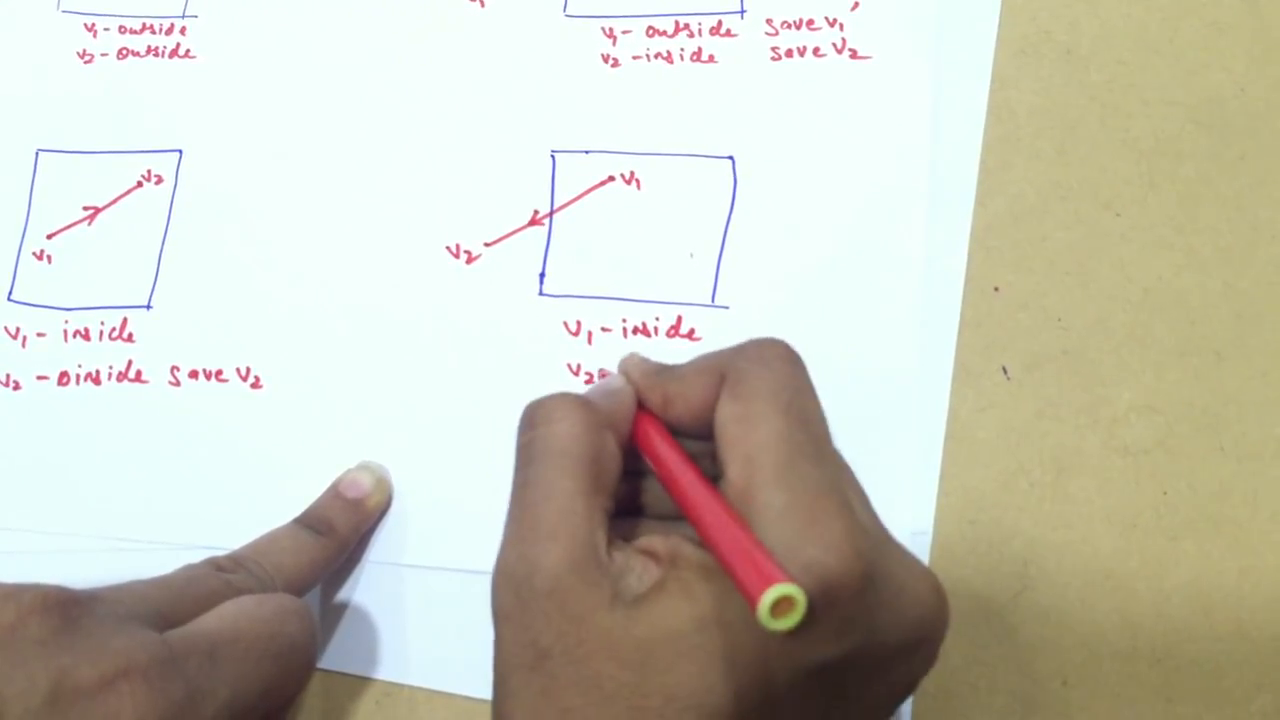 v1 - outside
v2 - outside
v1 - outside save v1'
v2 - inside save v2
v2
v1
v1
v2
v1 - inside
v2 - inside save v2
v1 - inside
v2